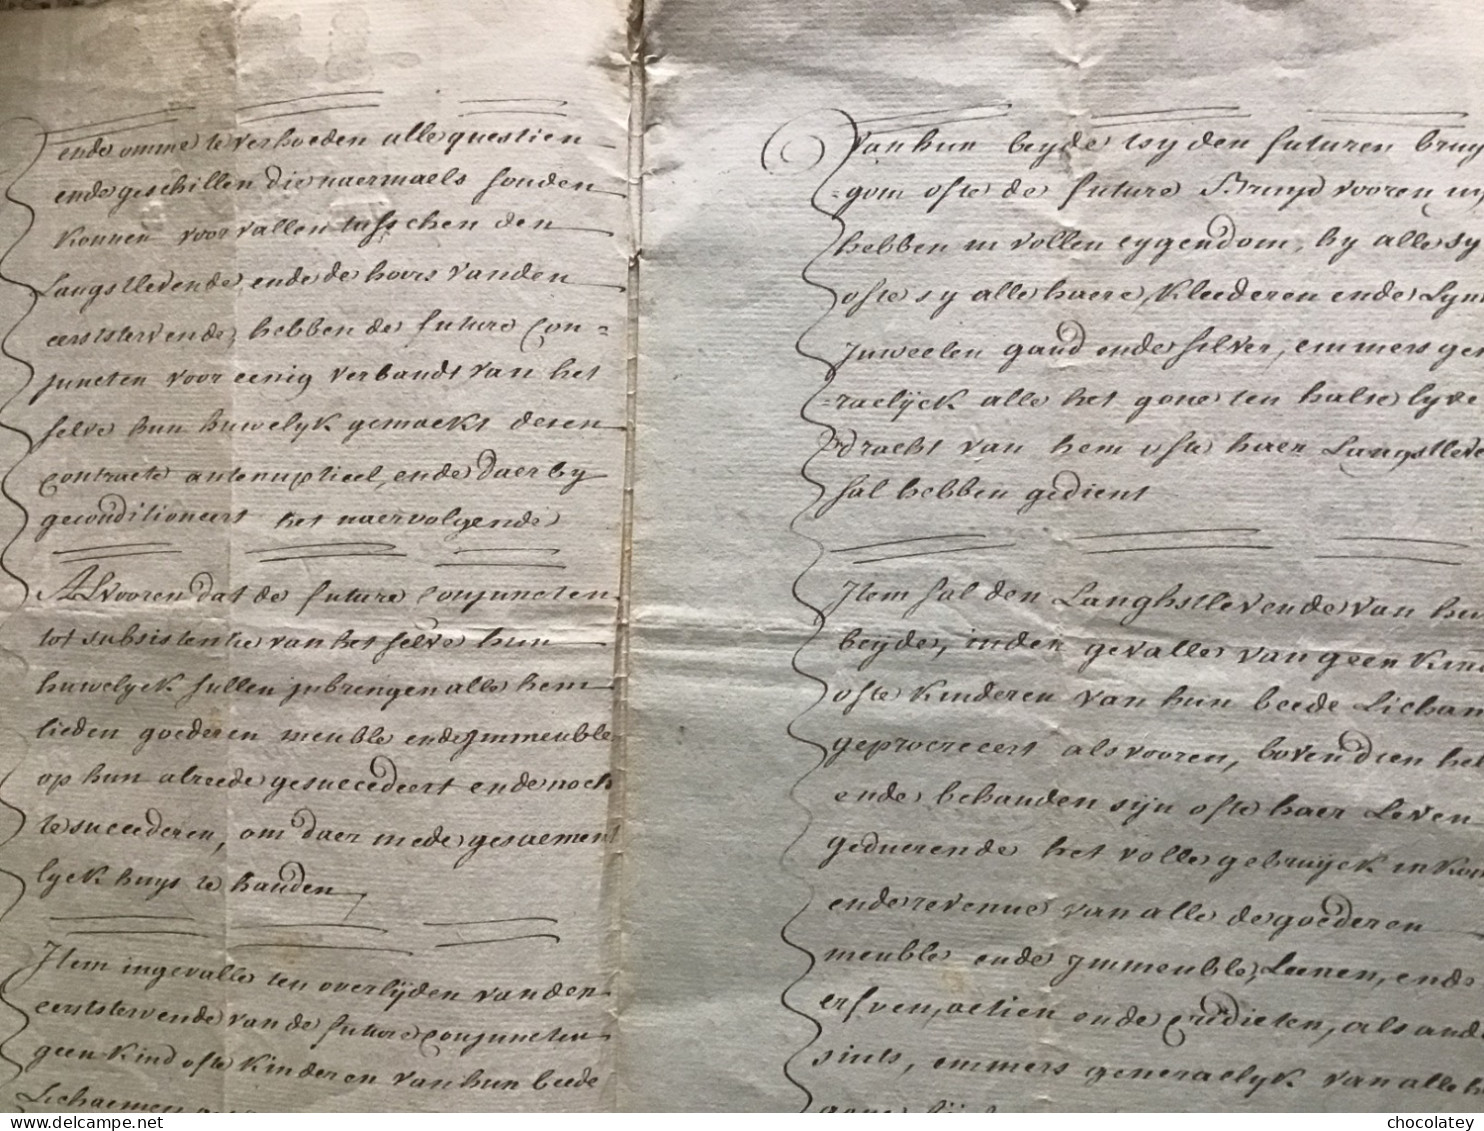 ende omme te verhoeden alle questien
ende geschillen die naermaels souden
konnen voorvallen tusschen den
Langstlevende, ende de hoirs vanden
eerststervende, hebben de future Con=
juncten voor eenig verbandt van het
selve hun huwelyk gemaekt desen
contracte antenuptieel, ende daer by
geconditioneert het naervolgende
Alvooren dat de future conjuncten
tot subsistentie van het selve hun
huwelyck sullen inbrengen alle hem
lieden goederen meuble ende Immeuble
op hun alreede gesuccedeert ende noch
te succederen, om daer mede gesaement
lyck huys te hauden
Item ingevalle ten overlijden vanden
eerststervende van de future conjuncten
geen kind ofte kinderen van hun beede
Lichaemen
van hun beyde tsy den futuren bruy
=gom ofte de future Bruyd vooren uyt
hebben in vollen eygendom, hy alle sy
ofte sy alle haere, kleederen ende Lyn
Juweelen gaud ende silver, emmers gen
=raelijck alle het gone ten halse lyve
dracht van hem ofte haer Langstleve
sal hebben gedient
Item sal den Langhstlevende van hu
beijde, inden gevalle van geen kind
ofte kinderen van hun beede Licham
geprocreeert als vooren, bovendien heb
ende behauden sijn ofte haer Leven
geduerende het volle gebruijck inkom
ende revenue van alle de goederen
meuble ende Immeuble, Leenen, ende
erfven, actien ende credieten, als and
sints, emmers generaelyk van alle h
gone
chocolatey